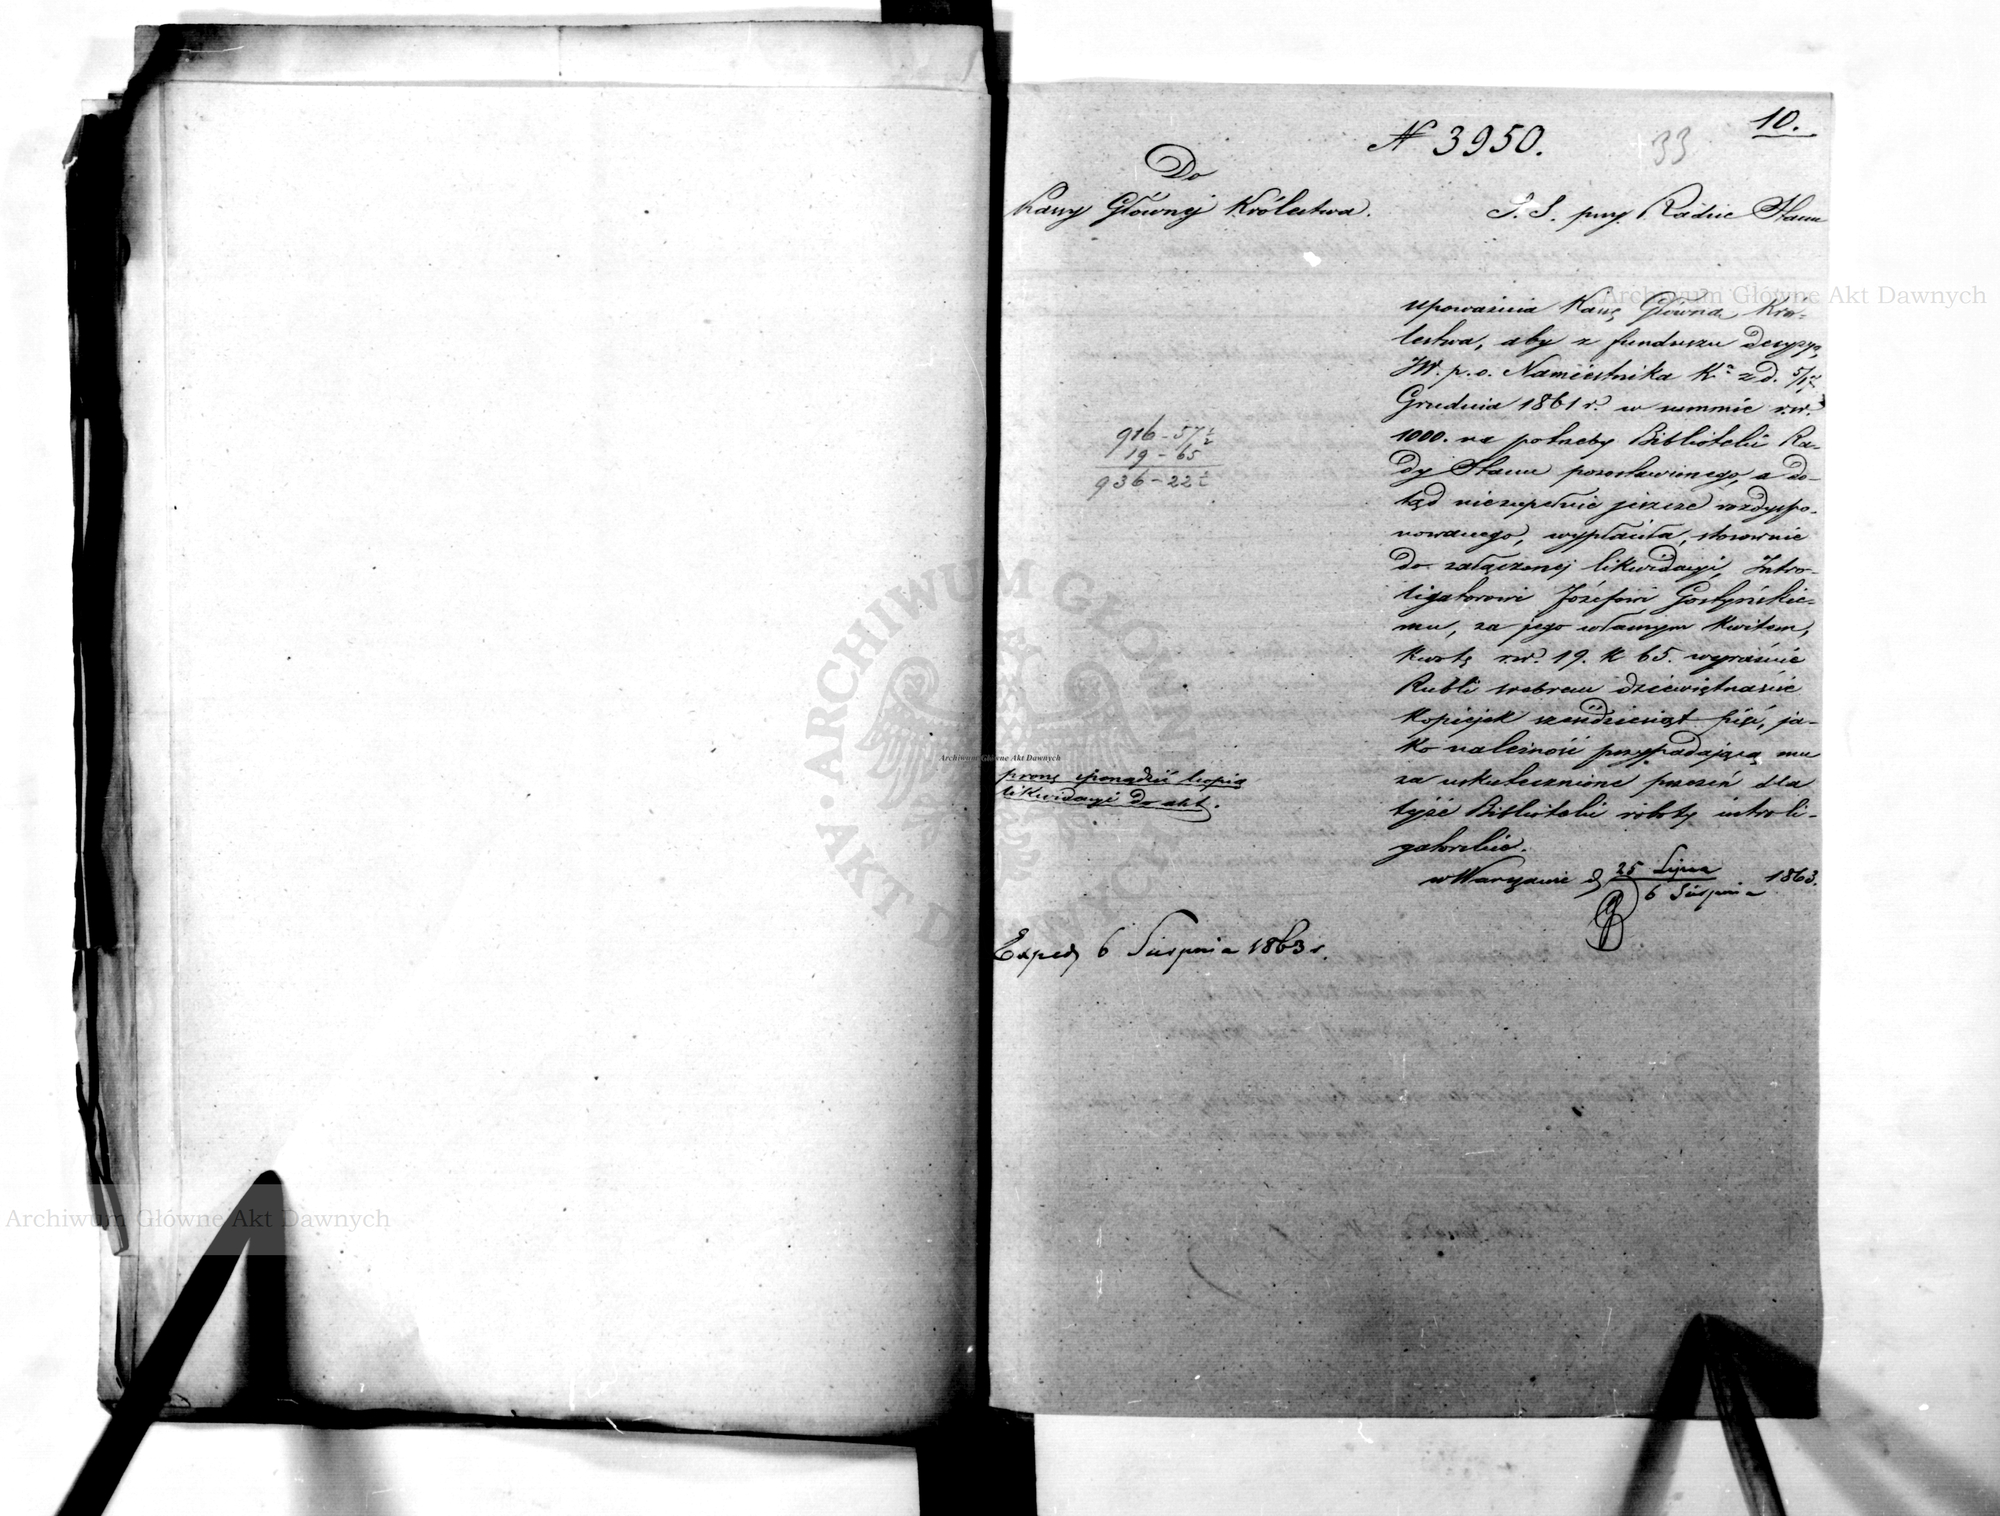 10.
N 3950.
33
Do
Kassy Głównej Królestwa.
S. S. przy Radzie Stanu
upoważnia Kassę Główną Kró-
lestwa, aby z funduszu decyzyą
JW. p.o. Namiestnika Kr. z d. 5/17
Grudnia 1861 r. w summie rsr.
1000. na potrzeby Biblioteki Ra-
dy Stanu pozostawionego, a do-
tąd niezupełnie jeszcze rozdyspo-
nowanego, wypłaciła, stosownie
do załączonej likwidacyi, Intro-
ligatorowi Józefowi Gostyńskie-
mu, za jego własnym kwitem,
kwotę rsr. 19. k 65. wyraźnie
Rubli srebrem dziewiętnaście
kopiejek sześćdziesiąt pięć, ja-
ko należność przypadającą mu
za uskutecznione przezeń dla
tejże Biblioteki roboty introli-
gatorskie.
w Warszawie d 25 Lipca / 6 Sierpnia 1863.
916 - 57 1/2
19 - 65
936 - 22 1/2
proszę sporządzić kopię
likwidacyi do akt.
Exped 6 Sierpnia 1863 r.
Archiwum Główne Akt Dawnych
Archiwum Główne Akt Dawnych
Archiwum Główne Akt Dawnych
ARCHIWUM GŁÓWNE AKT DAWNYCH